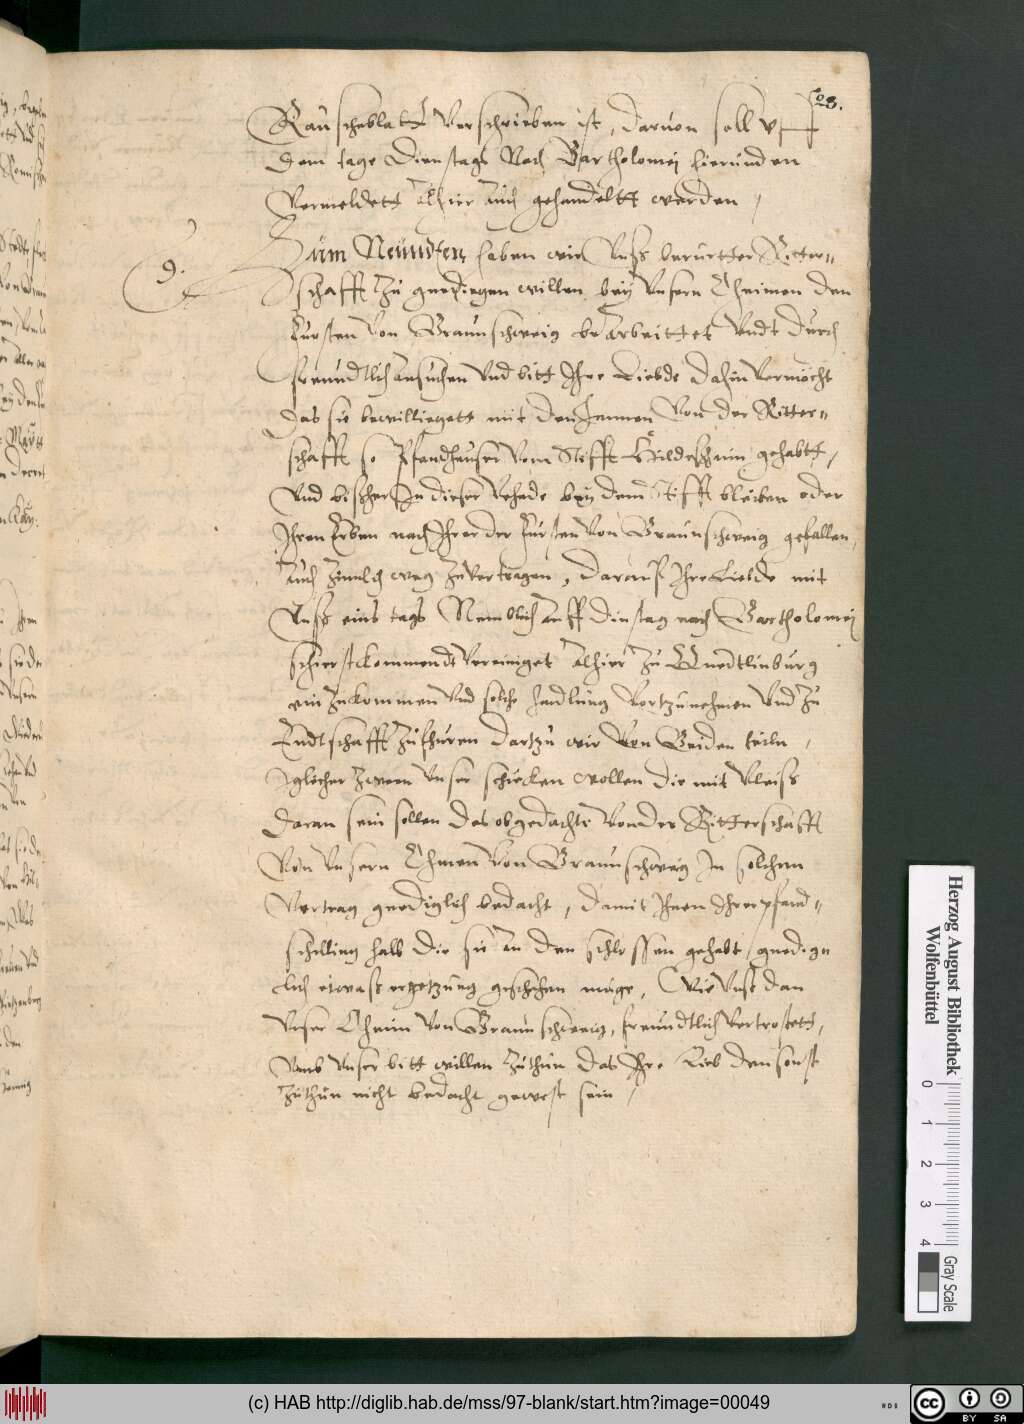 28.
Rauscheblatt verschrieben ist, daruon soll vff
dem tage Dienstags Nach Bartholomej hierunden
Vermeldett Alhier Auch gehandeltt werden,
9.
Zum Neundten haben wir Unss berurtter Ritter=
schafft Zu gnedigen willen bey Unsern Oheimen den
fursten von Braunschweig bearbeittet Undt durch
freundtlich Ansuchen Und bitt Ihre Liebde dahin vermöcht
das sie bewilliegett mit den Jennen von der Ritter=
schafft so Pfandheuser vom Stifft Hildesheim gehabtt,
Und bissher In dieser Vehede bey dem Stifft bleiben oder
Ihren Erben nach Ihrer der fursten von Braunschweig gefallen,
Auch Zimlich weg Zuvertragen, darauf Ihre Liebde mit
Unss eins tags Nemblich auff Dinstag nach Bartholomej
schierstkommendt vereiniget Alhier Zu Quedtlinburg
ein Zukommen Und solche handlung vortzunehmen Und Zu
Endtschafft Zufhuren dartzu wir von Beiden teiln,
Iglicher Zween Unser schicken wollen die mit Vleiss
daran sein sollen das obgedachte von der Ritterschafft
Von Unsern Ohmen von Braunschweig In solchem
Vertrag gnediglich bedacht, damit Ihnen Ihrer pfand=
schilling halb die sie An den schlossen gehabt, gnedig
lich etwass ergetzung geschehen muge, Wie Unss dan
Unser Oheim von Braunschweig, freundtlich vertrostett,
Umb Unser bitt willen Zuthun das Ihre Lieb den sonst
Zuthun nicht bedacht gewest sein,
Herzog August Bibliothek
Wolfenbüttel
0 1 2 3 4
Gray Scale
(c) HAB http://diglib.hab.de/mss/97-blank/start.htm?image=00049
HAB
cc BY SA